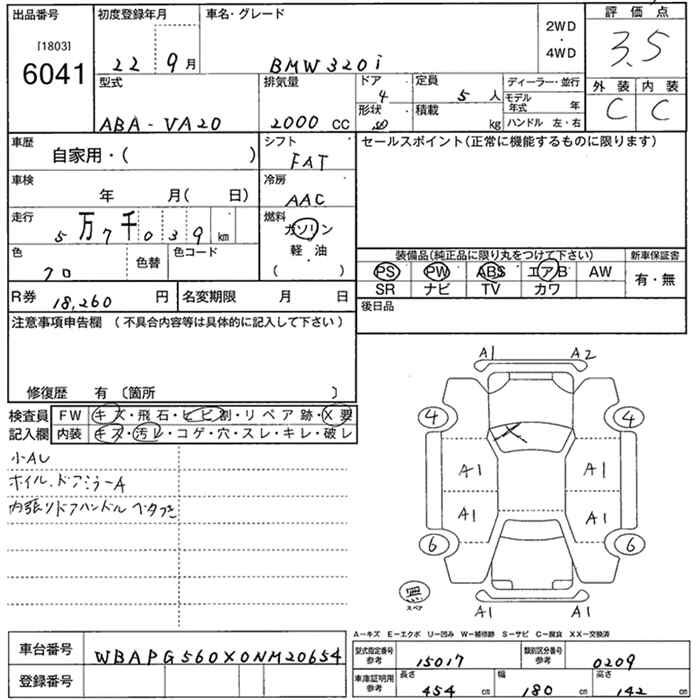 出品番号 初度登録年月 車名・グレード 2WD・4WD 評価点
[1803]
6041 22 9月 BMW 320i 3.5
型式 排気量 ドア 4 定員 5人 ディーラー・並行 外装 内装
ABA-VA20 2000 CC 形状 積載 kg モデル年式 年 C C
ハンドル 左・右
車歴 自家用・( ) シフト FAT セールスポイント(正常に機能するものに限ります)
車検 年 月( 日) 冷房 AAC
走行 5万7千039km 燃料 ガソリン
軽・油
( ・ )
色 クロ 色替 色コード 装備品(純正品に限り丸をつけて下さい) 新車保証書
PS PW ABS エアB AW 有・無
R券 18,260 円 名変期限 月 日 SR ナビ TV カワ
注意事項申告欄 (不具合内容等は具体的に記入して下さい) 後日品
修復歴 有 〔箇所 〕
検査員 FW キズ・飛石・ヒビ割・リペア跡・X要
記入欄 内装 キズ・汚レ・コゲ・穴・スレ・キレ・破レ
小AU
ホイル、ドアミラーA
内張りドアハンドル ベタつき
A1 A2
4 X 4
A1 A1
A1 A1
6 6
無
スペア A1 A1
A−キズ E−エクボ U−凹み W−補修跡 S−サビ C−腐食 XX−交換済
車台番号 WBAPG560X0NM20654 型式指定番号 参考 15017 類別区分番号 参考 0209
登録番号 車庫証明用 参考 長さ 454 cm 幅 180 cm 高さ 142 cm